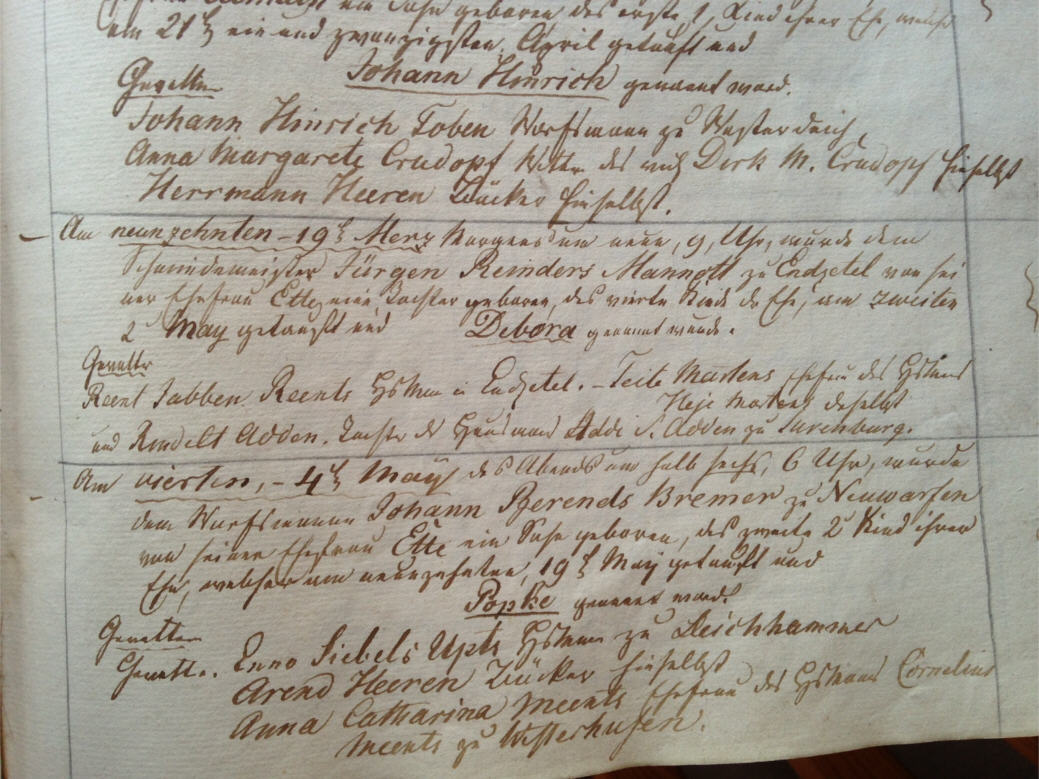 ein Sohn geboren des erste, 1, Kind ihrer Ehe, welches
am 21ten ein und zwanzigsten April getauft und
Johann Hinrich genannt ward.
Gevattern
Johann Hinrich Toben Warfsmann zu Westerdeich,
Anna Margarete Crudopf Wittwe des weil Dirk M. Crudopf hieselbst
Herrmann Heeren Bäcker hieselbst.
Am neunzehnten - 19ten Merz Morgens um neun, 9, Uhr, wurde dem
Schmiedemeister Jürgen Reinders Mannott zu Endzetel von sei
ner Ehefrau Ette, eine Tochter geboren, des vierte Kind der Ehe, am zweiten
2 May getauft und Debora genannt wurde.
Gevattr
Reent Jabben Reents Hsman in Endzetel. - Teite Martens Ehefrau des Hsmans
Heje Martens daselbst
und Rendelt Adden. Tochter des Hausmans Adde S. Adden zu
Am vierten, - 4ten May des Abends um halb sechs, 6 Uhr, wurde
dem Warfsmann Johann Berends Bremer zu Neuwarfen
von seiner Ehefrau Ette ein Sohn geboren, des zweite 2 Kind ihrer
Ehe, welcher am neunzehnten, 19ten May getauft und
Popke genannt ward.
Gevattern
Gevattr. Enno Siebels Upts Hsman zu Deichhammer
Arend Heeren Bäcker hieselbst
Anna Catharina Meents Ehefrau des Hsmans Cornelius
Meents zu Westerhusen.